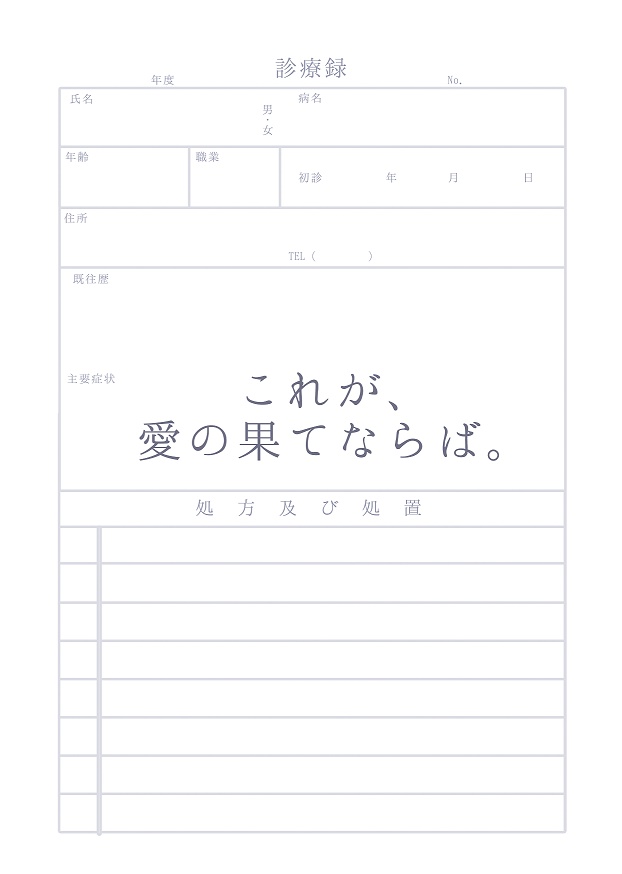 診療録
年度 No.
氏名 男・女 病名
年齢 職業 初診 年 月 日
住所
TEL ( )
既往歴
主要症状
これが、
愛の果てならば。
処方及び処置